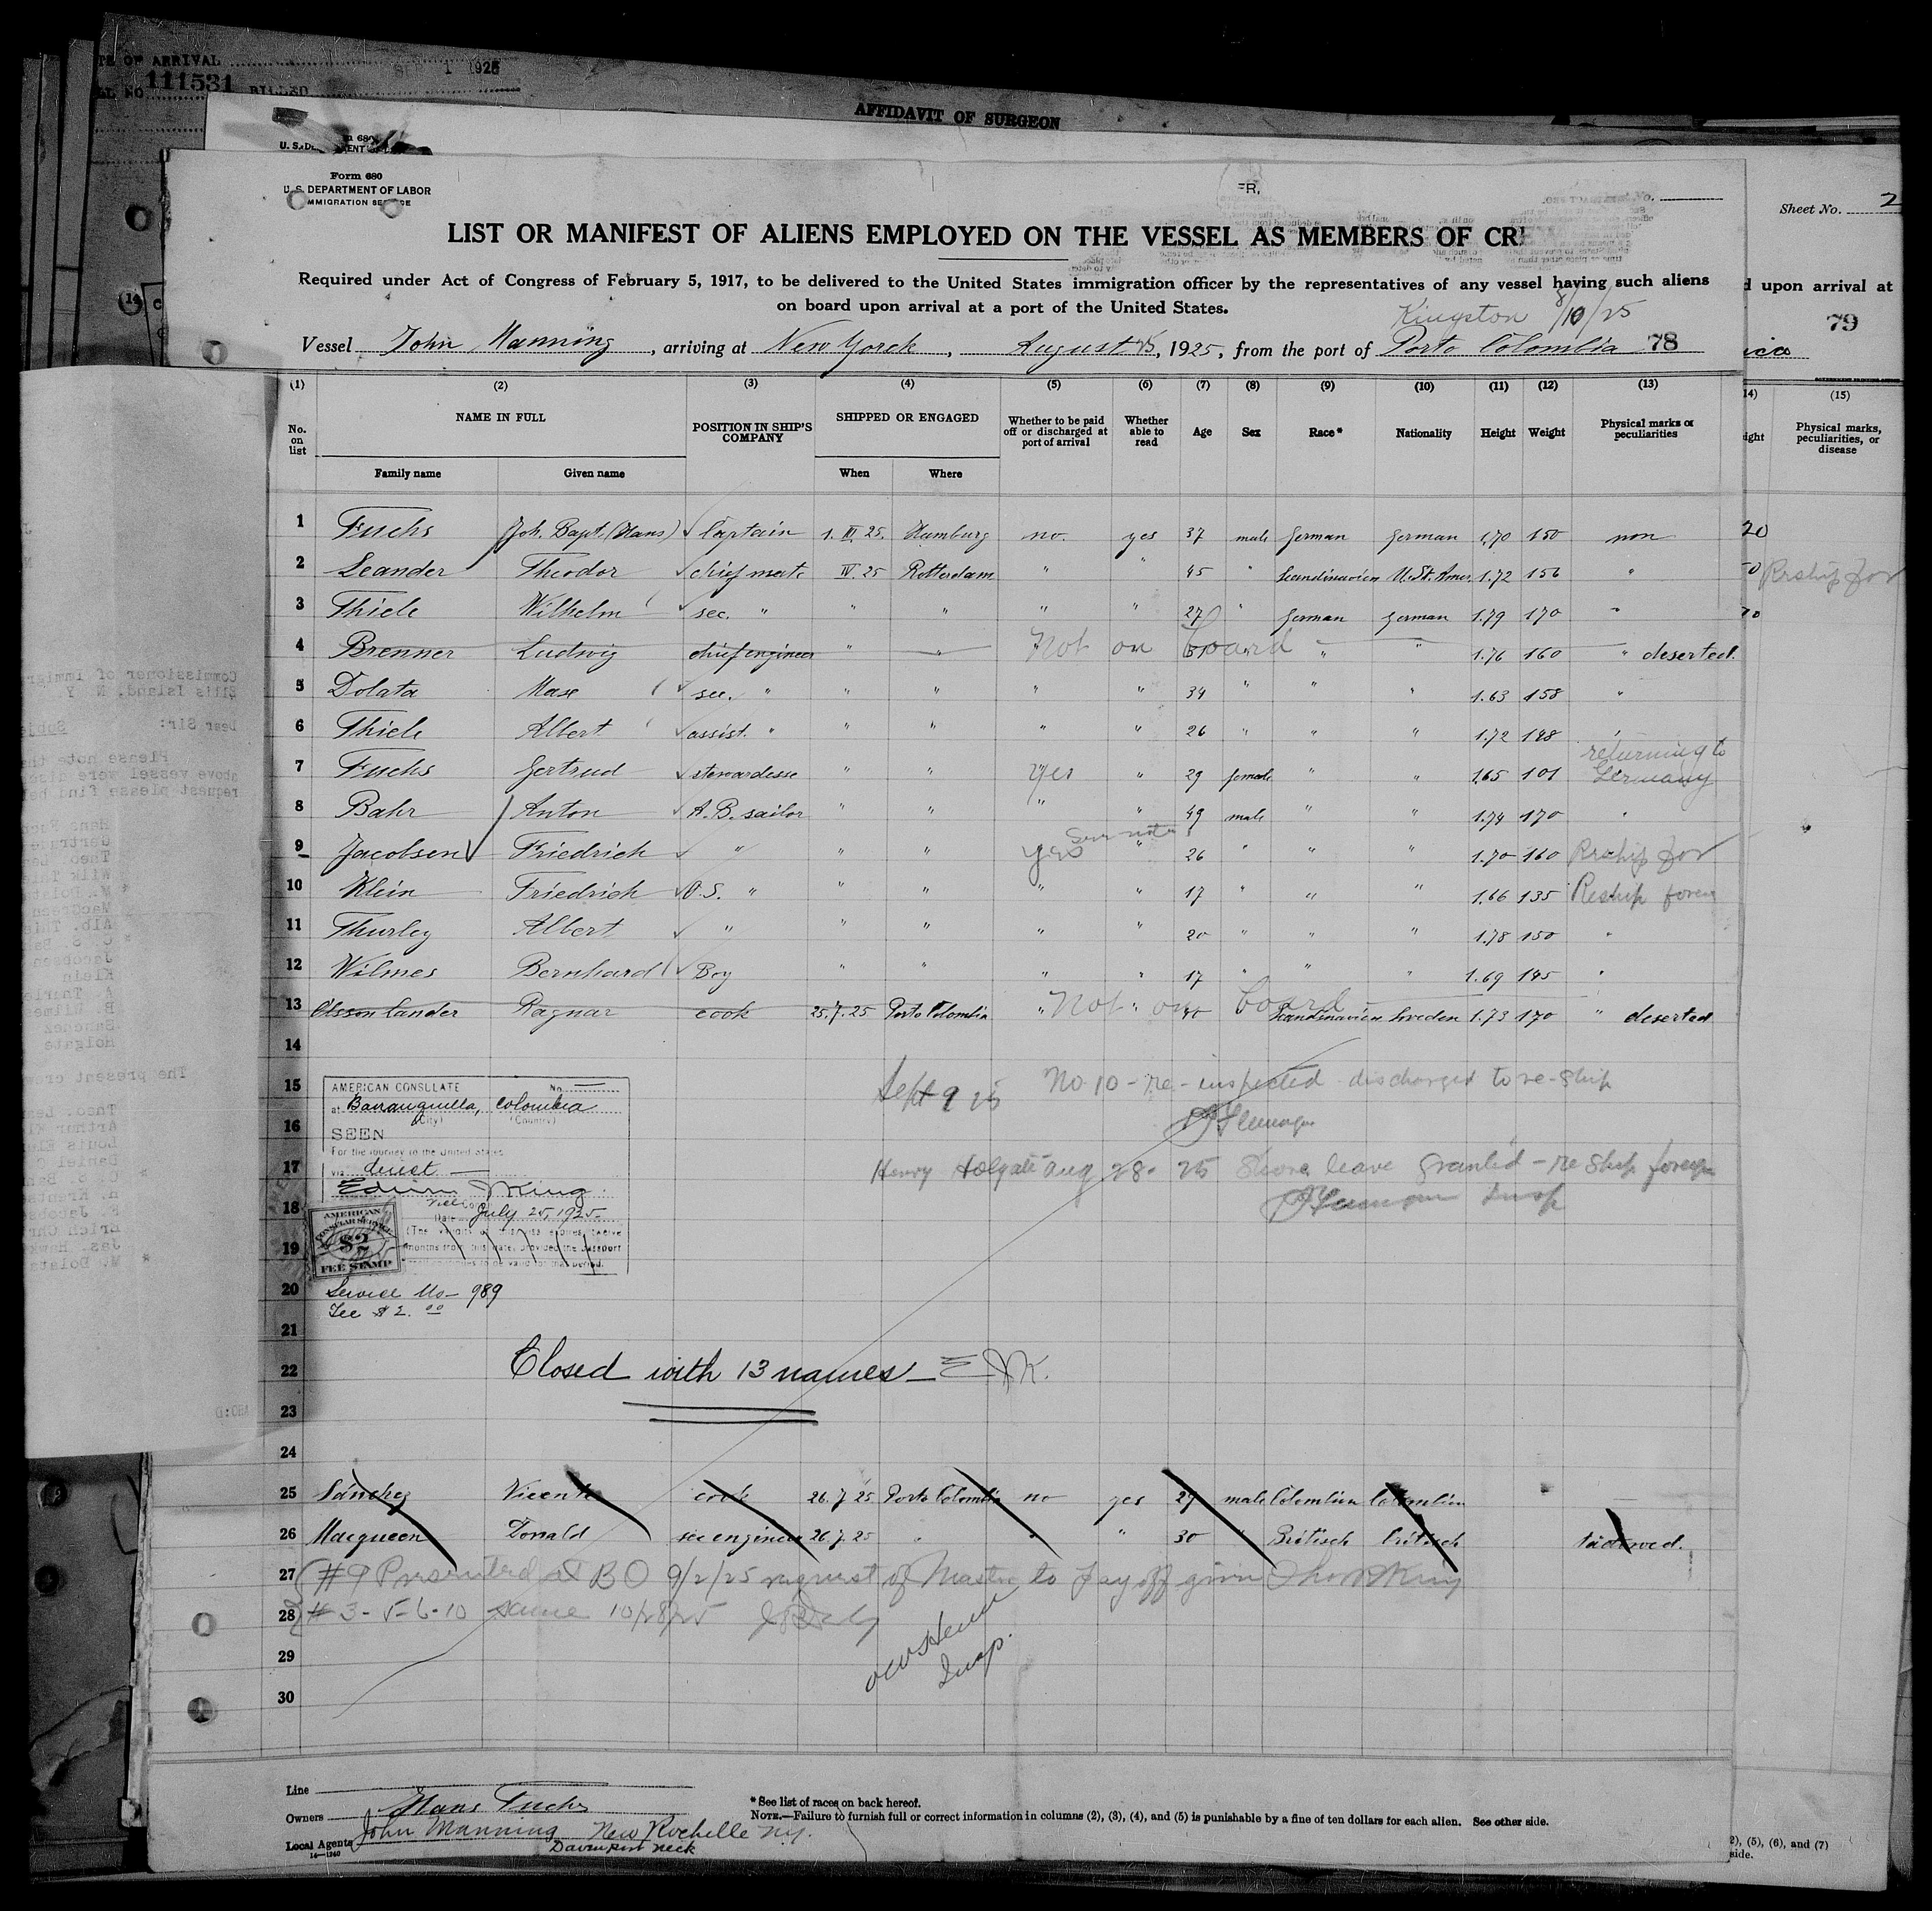 TE OF ARRIVAL SEP 1 1925
LL NO. 111531 BILLED
AFFIDAVIT OF SURGEON
Form 680
U. S. DEPARTMENT OF LABOR
IMMIGRATION SERVICE
Sheet No. 2
LIST OR MANIFEST OF ALIENS EMPLOYED ON THE VESSEL AS MEMBERS OF CRE
Required under Act of Congress of February 5, 1917, to be delivered to the United States immigration officer by the representatives of any vessel having such aliens
on board upon arrival at a port of the United States.
d upon arrival at
79
Kingston 8/10/25
Vessel John Manning, arriving at New Yorck, August 25, 1925, from the port of Porto Colombia 78
ica
(1) (2) (3) (4) (5) (6) (7) (8) (9) (10) (11) (12) (13)
14) (15)
No. on list NAME IN FULL POSITION IN SHIP'S COMPANY SHIPPED OR ENGAGED Whether to be paid off or discharged at port of arrival Whether able to read Age Sex Race* Nationality Height Weight Physical marks or peculiarities
ight Physical marks, peculiarities, or disease
Family name Given name When Where
1 Fuchs Joh. Bapt. (Hans) Captain 1. III. 25. Hamburg no. yes 37 male german german 1,70 150 non
2 Leander Theodor chief mate IV. 25 Rotterdam " " 45 " Scandinavien U. St. Amer. 1.72 156 "
Reship for
3 Thiele Wilhelm sec. " " " " " 27 " german german 1.79 170 "
4 Brenner Ludwig chief engineer " " Not on board " " 1.76 160 " deserted.
5 Dolata Max sec. " " " " " 34 " " " 1.63 158 "
6 Thiele Albert assist. " " " " " 26 " " " 1.72 148 "
7 Fuchs Gertrud stewardesse " " yes " 29 female " " 1.65 101 returning to Germany
8 Bahr Anton A. B. sailor " " " " 49 male " " 1.74 170 "
9 Jacobsen Friedrich " " " yes " 26 " " " 1.70 160 Reship for
10 Klein Friedrich O. S. " " " " " 17 " " " 1.66 135 Reship foreign
11 Thurley Albert " " " " " 20 " " " 1.78 150 "
12 Wilmes Bernhard Boy " " " " 17 " " " 1.69 145 "
13 Olsson Lander Ragnar cook 25. 7. 25 Porto Colombia Not on board Scandinavien Sweden 1.73 170 " deserted
14
15
AMERICAN CONSULATE No.
at Barranquilla, Colombia
(City) (Country)
SEEN
For the journey to the United States
via direct
Edwin J King
Date July 25, 1925
AMERICAN CONSULAR SERVICE
$2
FEE STAMP
Service No- 989
Fee $ 2.00
Sept 9 25 No. 10 - re-inspected discharged to re-ship
16
17 Henry Holgate Aug 28 - 25 Shore leave granted - re ship foreign
Insp
18
19
20
21
22 Closed with 13 names - E.J.K.
23
24
25 Sánchez Vicente cook 26. 7. 25 Porto Colombia no yes 27 male Colombian Colombian
26 Macqueen Donald sec engineer 26. 7. 25 " " " 30 " Britisch britisch
27 #9 Presented at B O 9/2/25 request of Master to pay off given
28 # 3-5-6-10 same 10/28/25
Insp.
29
30
Line
Owners Hans Fuchs
Local Agents John Manning New Rochelle N.Y.
Davenport Neck
14—1240
* See list of races on back hereof.
NOTE.—Failure to furnish full or correct information in columns (2), (3), (4), and (5) is punishable by a fine of ten dollars for each alien. See other side.
2), (5), (6), and (7)
side.